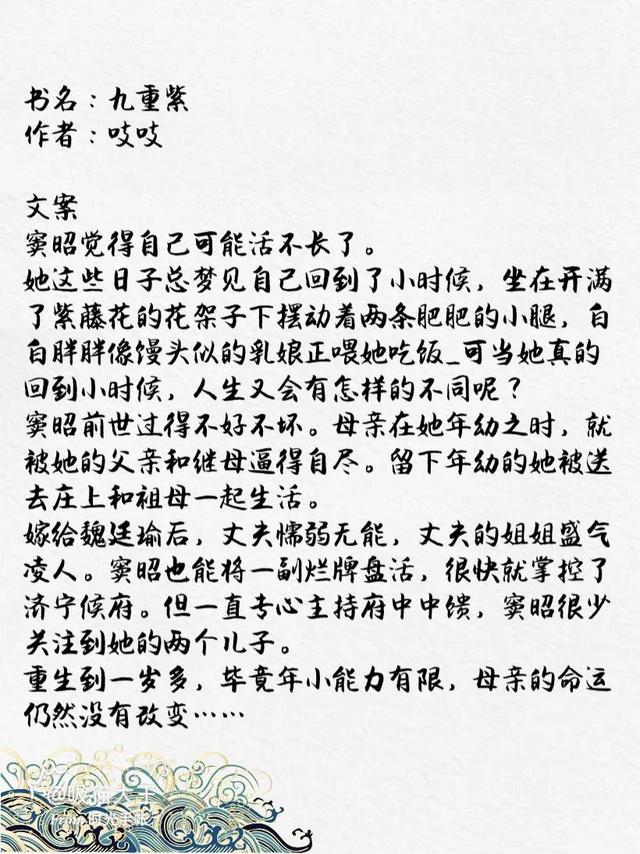 书名：九重紫
作者：吱吱
文案
窦昭觉得自己可能活不长了。
她这些日子总梦见自己回到了小时候，坐在开满
了紫藤花的花架子下摆动着两条肥肥的小腿，白
白胖胖像馒头似的乳娘正喂她吃饭_可当她真的
回到小时候，人生又会有怎样的不同呢？
窦昭前世过得不好不坏。母亲在她年幼之时，就
被她的父亲和继母逼得自尽。留下年幼的她被送
去庄上和祖母一起生活。
嫁给魏廷瑜后，丈夫懦弱无能，丈夫的姐姐盛气
凌人。窦昭也能将一副烂牌盘活，很快就掌控了
济宁候府。但一直专心主持府中中馈，窦昭很少
关注到她的两个儿子。
重生到一岁多，毕竟年小能力有限，母亲的命运
仍然没有改变……
@吸猫大王
From 时光手账